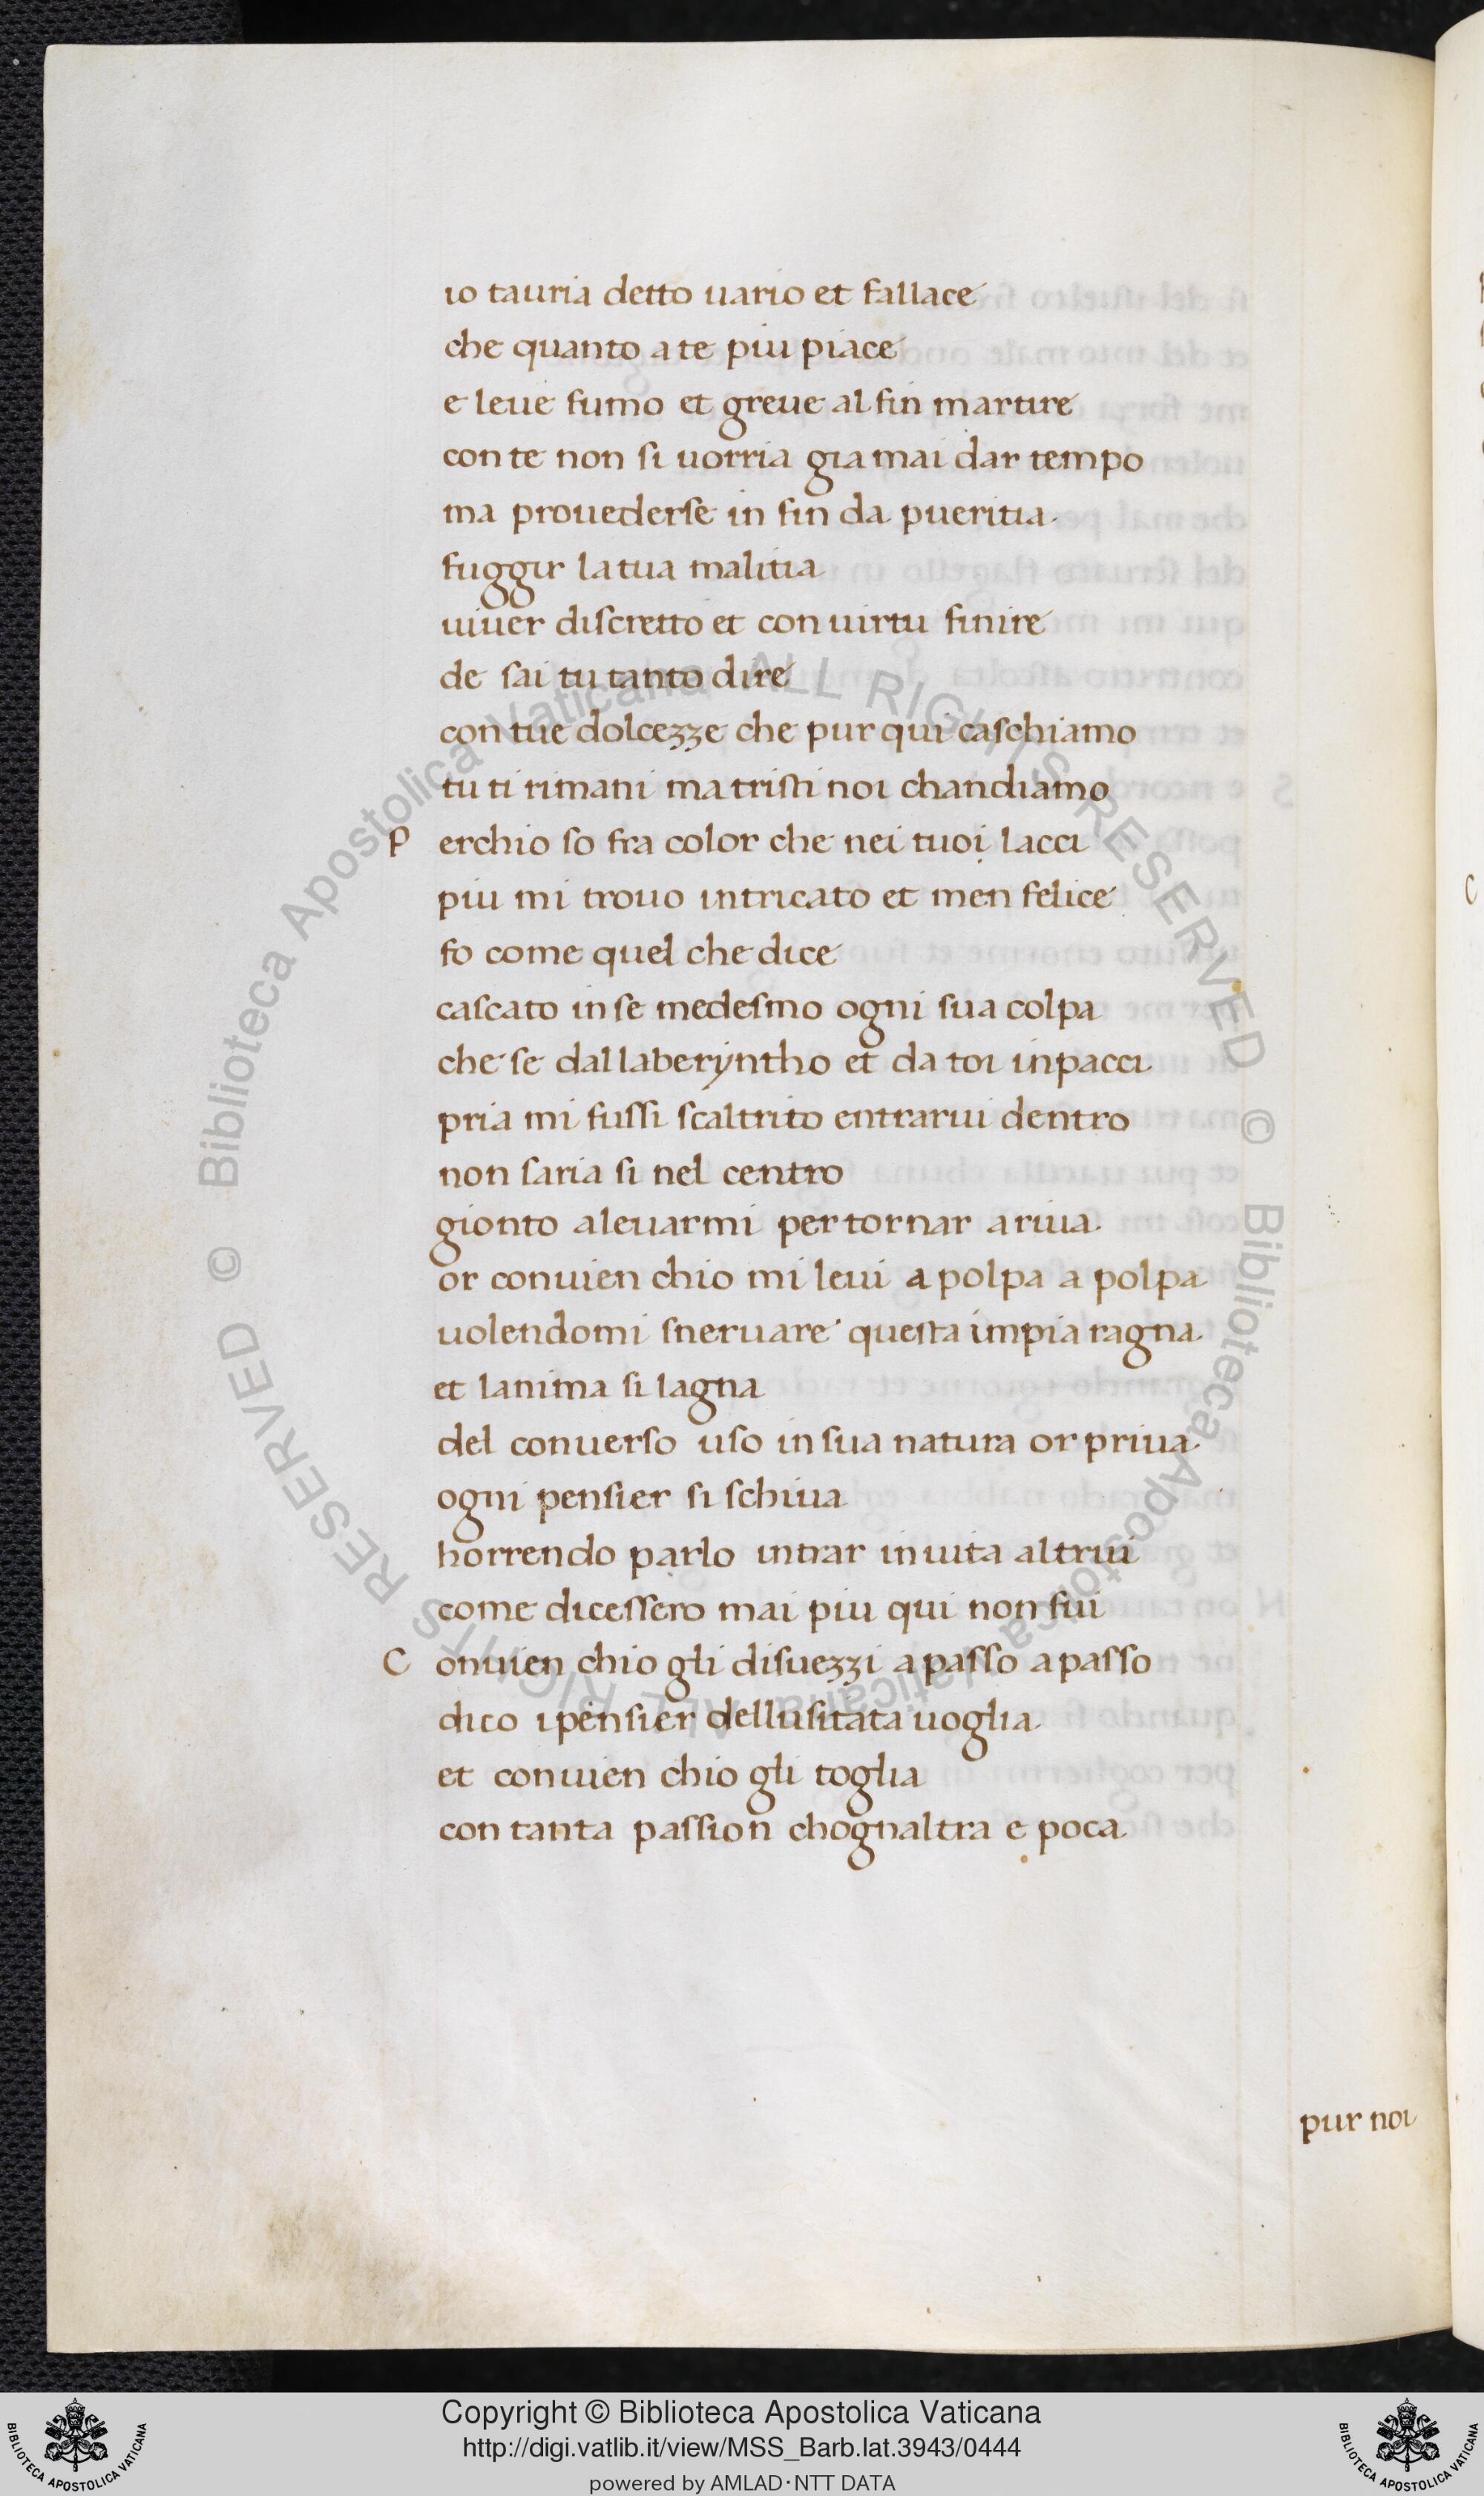 io tauria detto uario et fallace
che quanto a te piu piace
e leue fumo et greue al fin martire
con te non si uorria gia mai dar tempo
ma prouederse in fin da pueritia
fuggir la tua malitia
uiuer discretto et con uirtu finire
de sai tu tanto dire
con tue dolcezze che pur qui caschiamo
tu ti rimani ma tristi noi chandiamo
P erchio so fra color che nei tuoi lacci
piu mi trouo intricato et men felice
fo come quel che dice
cascato in se medesmo ogni sua colpa
che se dal laberyntho et da toi inpacci
pria mi fussi scaltrito entrarui dentro
non saria si nel centro
gionto a leuarmi per tornar a riua
or conuien chio mi leui a polpa a polpa
uolendomi sneruare questa impia ragna
et lanima si lagna
del conuerso uso in sua natura or priua
ogni pensier si schiua
horrendo parlo intrar in uita altrui
come dicessero mai piu qui non fui
C onuien chio gli disuezzi a passo a passo
dico i pensier dellusitata uoglia
et conuien chio gli toglia
con tanta passion chognaltra e poca
pur noi
Copyright © Biblioteca Apostolica Vaticana
http://digi.vatlib.it/view/MSS_Barb.lat.3943/0444
powered by AMLAD·NTT DATA
BIBLIOTECA APOSTOLICA VATICANA
BIBLIOTECA APOSTOLICA VATICANA
© Biblioteca Apostolica Vaticana ALL RIGHTS RESERVED
© Biblioteca Apostolica Vaticana ALL RIGHTS RESERVED